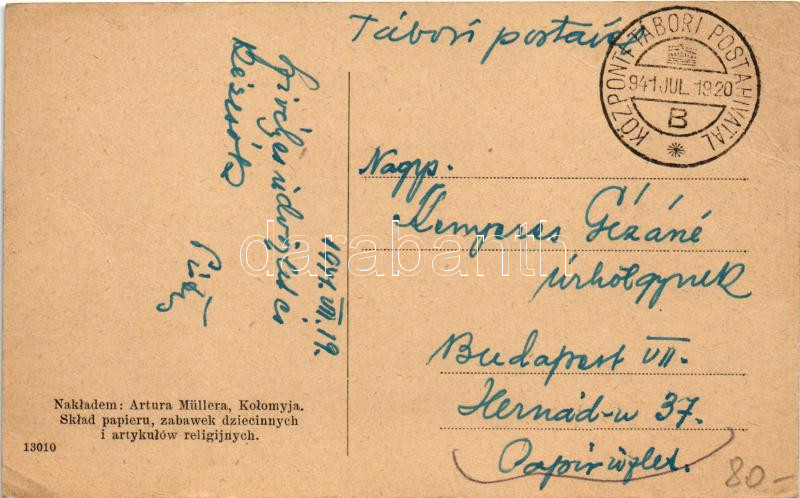 Tábori postával
KÖZPONTI TÁBORI POSTAHIVATAL
941 JUL. 19 20
B
Nagys.
Gézáné
úrhölgynek
Budapest VII.
Hernád-u 37.
Papírüzlet.
1941. VII. 19.
Szivélyes üdvözletei
Nakładem: Artura Müllera, Kołomyja.
Skład papieru, zabawek dziecinnych
i artykułów religijnych.
13010
80-
darabanth